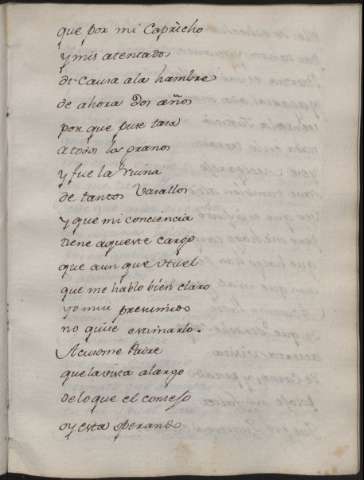 que por mi Capricho
y mis atentados
di causa a la hambre
de ahora dos años
por que puse tasa
a todos los granos
y fue la ruina
de tantos Vasallos
y que mi conciencia
tiene aqueste cargo
que aun que
que me hablo bien claro
yo muy presumido
no quise estimarlo.
Acusome Padre
que la visa alargo
de lo que el consejo
oy esta operando